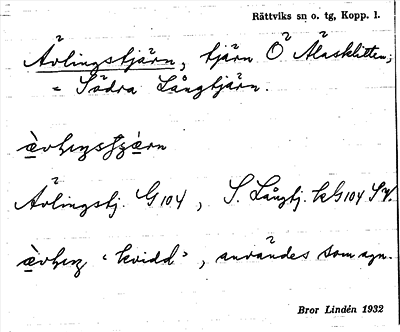 Rättviks sn o. tg, Kopp. l.
Ävlingstjärn, tjärn Ö Älasklitten;
= Södra Långtjärn.
Ävlingstj. G 104, S. Långtj. kG104 SV.
‘kvidd’, användes som agn.
Bror Lindén 1932